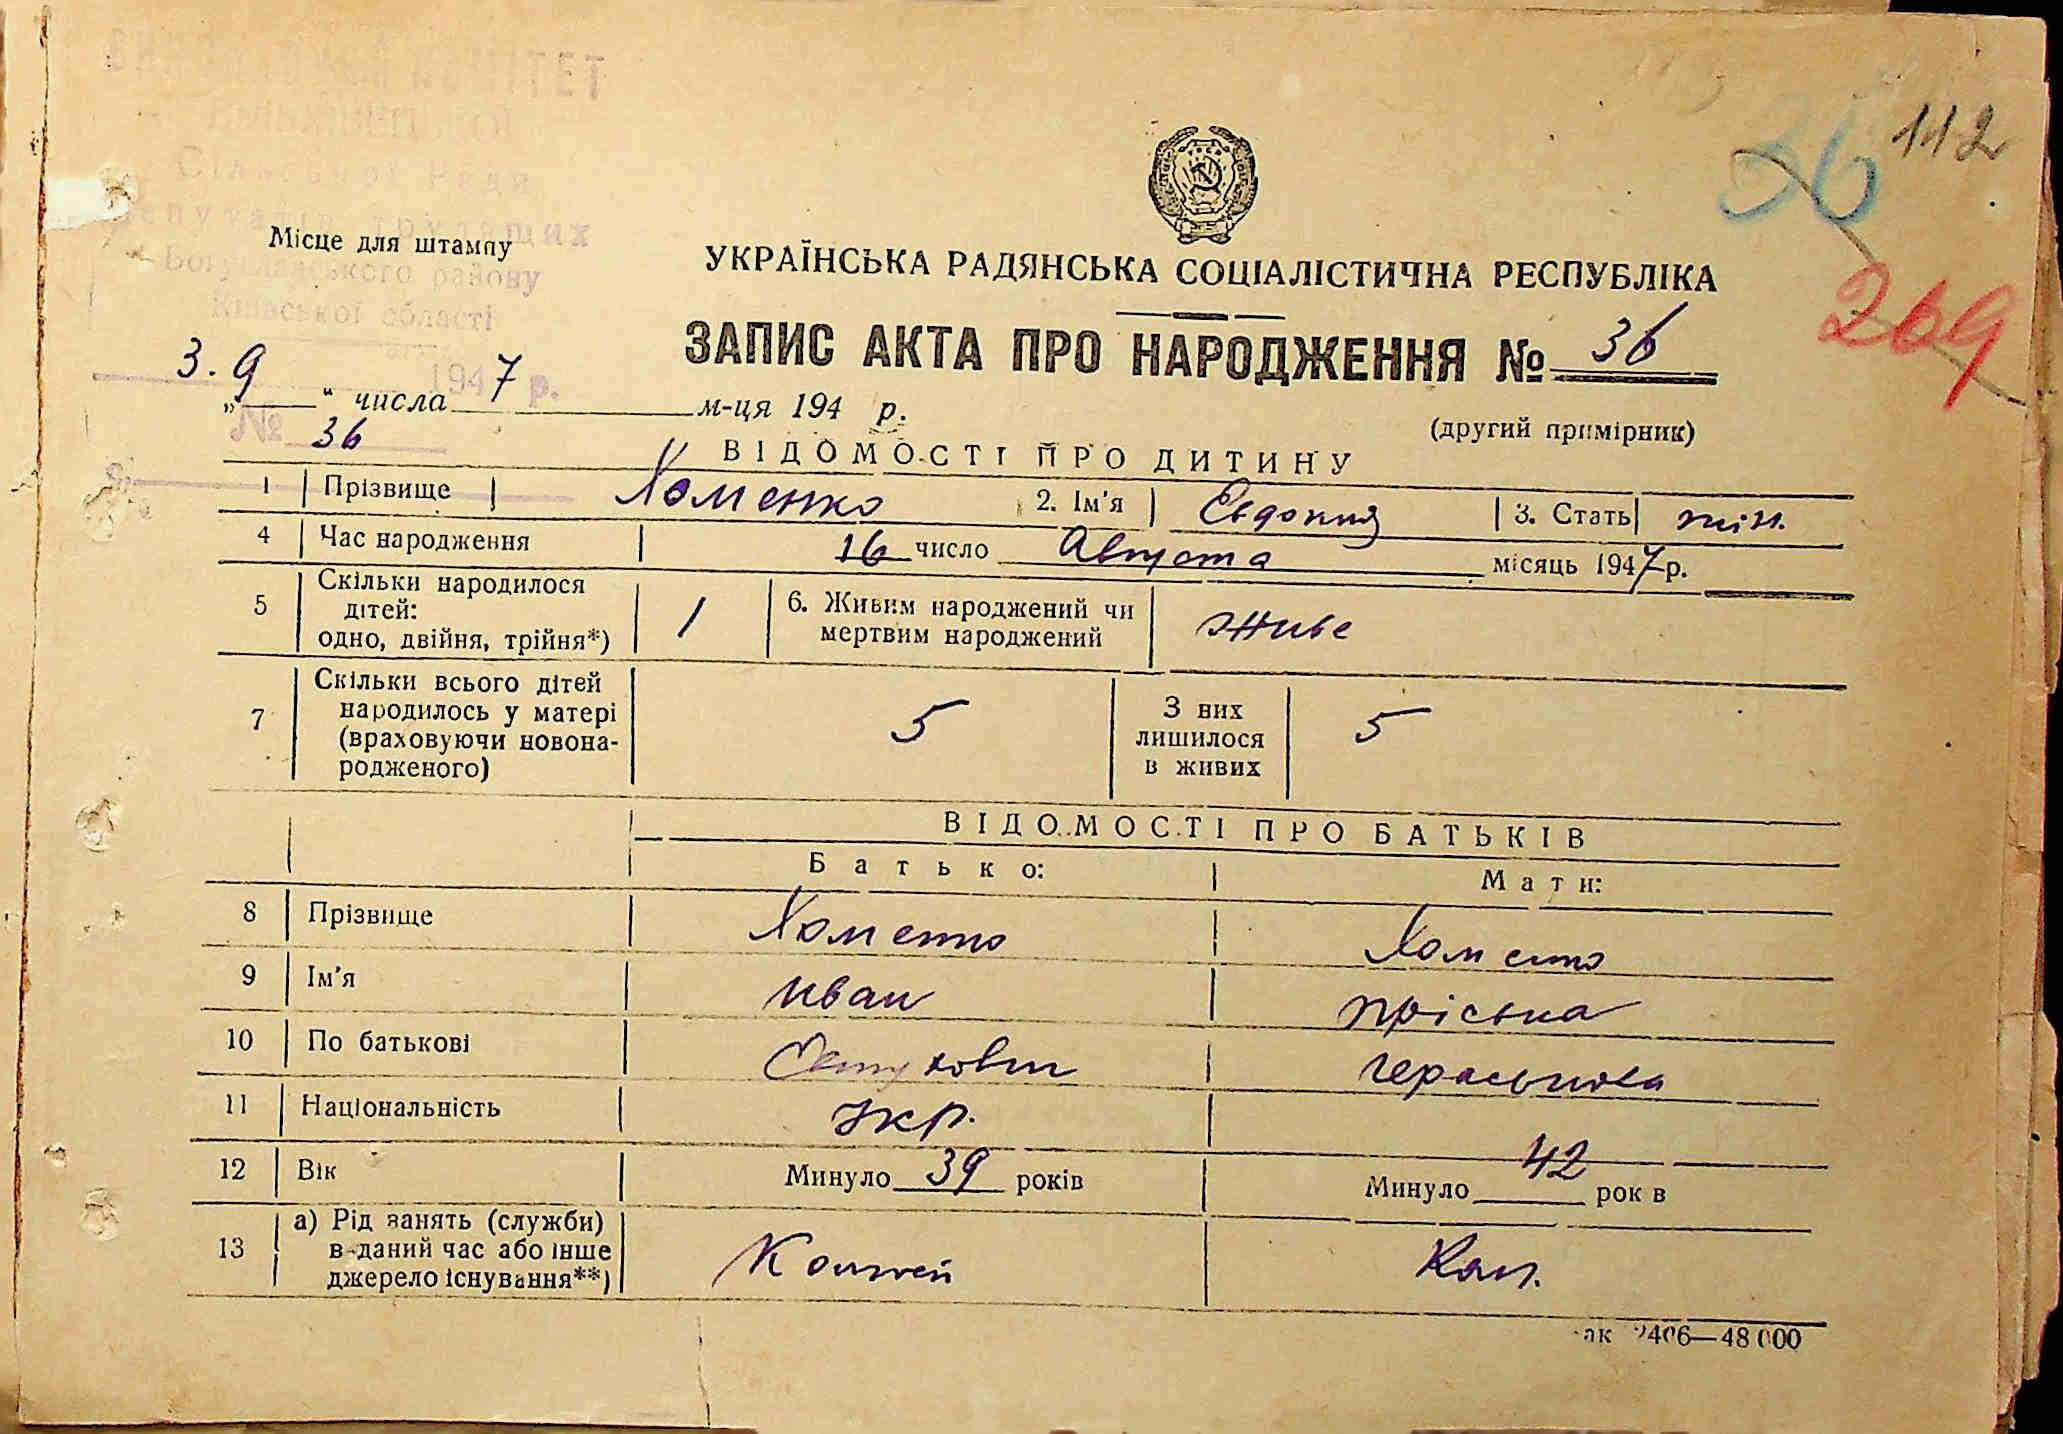 112
36
269
КОМІТЕТ
Сільської Ради
депутатів трудящих
Місце для штампу
Богуславського району
Київської області
УКРАЇНСЬКА РАДЯНСЬКА СОЦІАЛІСТИЧНА РЕСПУБЛІКА
ЗАПИС АКТА ПРО НАРОДЖЕННЯ № 36
3.9 1947 р.
„ “ числа м-ця 194 р.
(другий примірник)
№ 36
ВІДОМОСТІ ПРО ДИТИНУ
1 Прізвище Хоменко 2. Ім'я Евдокия 3. Стать жін.
4 Час народження 16 число Августа місяць 1947 р.
5 Скільки народилося дітей: одно, двійня, трійня*) 1 6. Живим народжений чи мертвим народжений живе
7 Скільки всього дітей народилось у матері (враховуючи новонародженого) 5 З них лишилося в живих 5
ВІДОМОСТІ ПРО БАТЬКІВ
Батько: Мати:
8 Прізвище Хоменко Хоменко
9 Ім'я Иван Пріська
10 По батькові
11 Національність Укр.
12 Вік Минуло 39 років Минуло 42 рок в
13 а) Рід занять (служби) в даний час або інше джерело існування**) Кол.
ак 2406—48 000